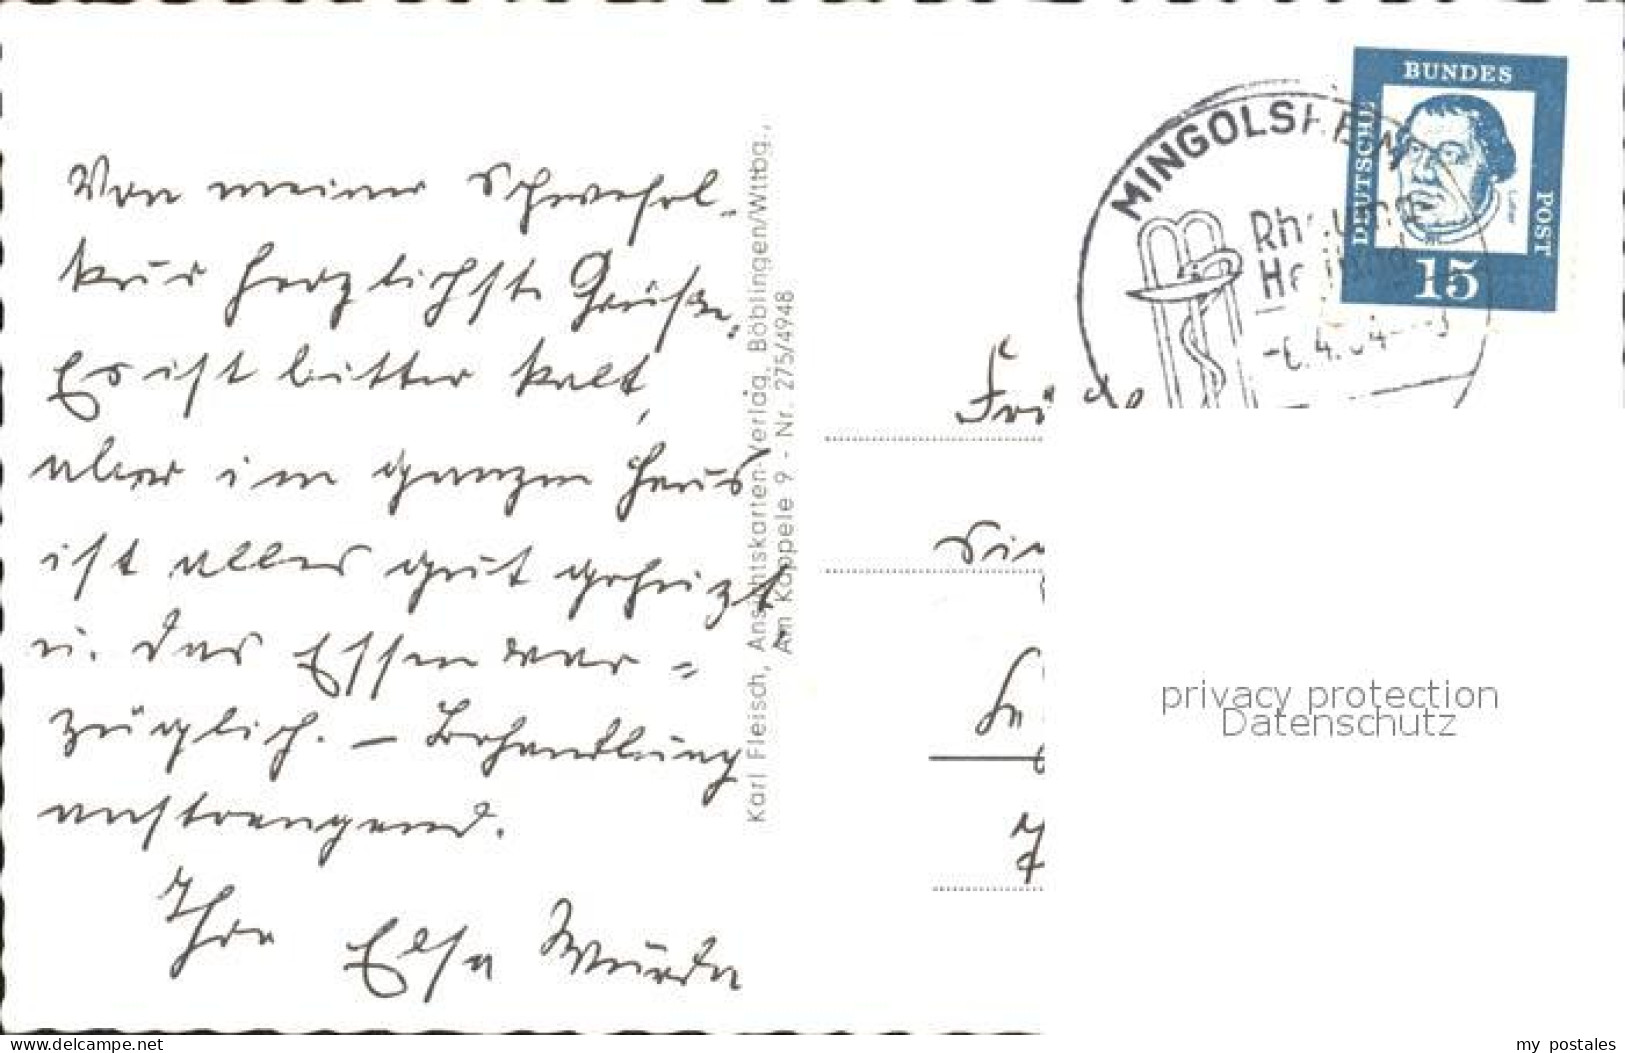 Von meiner Schwefel-
kur herzlichste Grüsse.
Es ist bitter kalt,
aber im ganzen Haus
ist alles gut geheizt
u. das Essen vor-
züglich. – Behandlung
anstrengend.
Ihre Elsa
Karl Fleisch, Ansichtskarten-Verlag, Böblingen/Wttbg.,
Am Käppele 9 - Nr. 275/4948
MINGOLSHEIM
BUNDES
DEUTSCHE
POST
15
privacy protection
Datenschutz
www.delcampe.net
my_postales